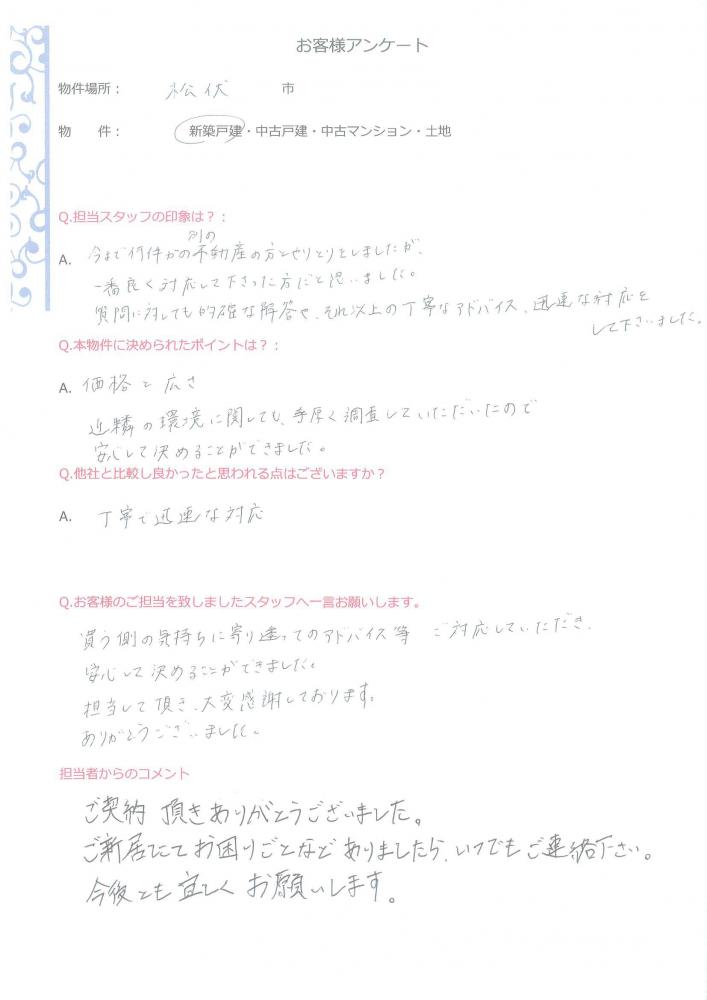 お客様アンケート
物件場所： 松伏 市
物　　件： 新築戸建・中古戸建・中古マンション・土地
Q.担当スタッフの印象は？：
別の
A. 今まで何件かの不動産の方とやりとりをしましたが、
一番良く対応して下さった方だと思いました。
質問に対しても的確な解答や、それ以上の丁寧なアドバイス、迅速な対応を
して下さいました。
Q.本物件に決められたポイントは？：
A. 価格と広さ
近隣の環境に関しても、手厚く調査していただいたので
安心して決めることができました。
Q.他社と比較し良かったと思われる点はございますか？
A. 丁寧で迅速な対応
Q.お客様のご担当を致しましたスタッフへ一言お願いします。
買う側の気持ちに寄り添ってのアドバイス等 ご対応していただき、
安心して決めることができました。
担当して頂き、大変感謝しております。
ありがとうございました。
担当者からのコメント
ご契約 頂きありがとうございました。
ご新居にてお困りごとなどありましたら、いつでもご連絡下さい。
今後とも宜しくお願いします。